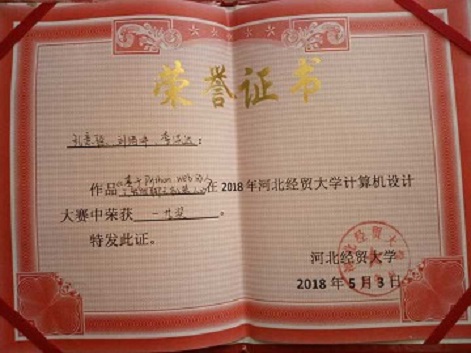 荣誉证书
作品《基于Python Web 在2018年河北经贸大学计算机设计
大赛中荣获 一等奖。
特发此证。
河北经贸大学
2018年5月3日